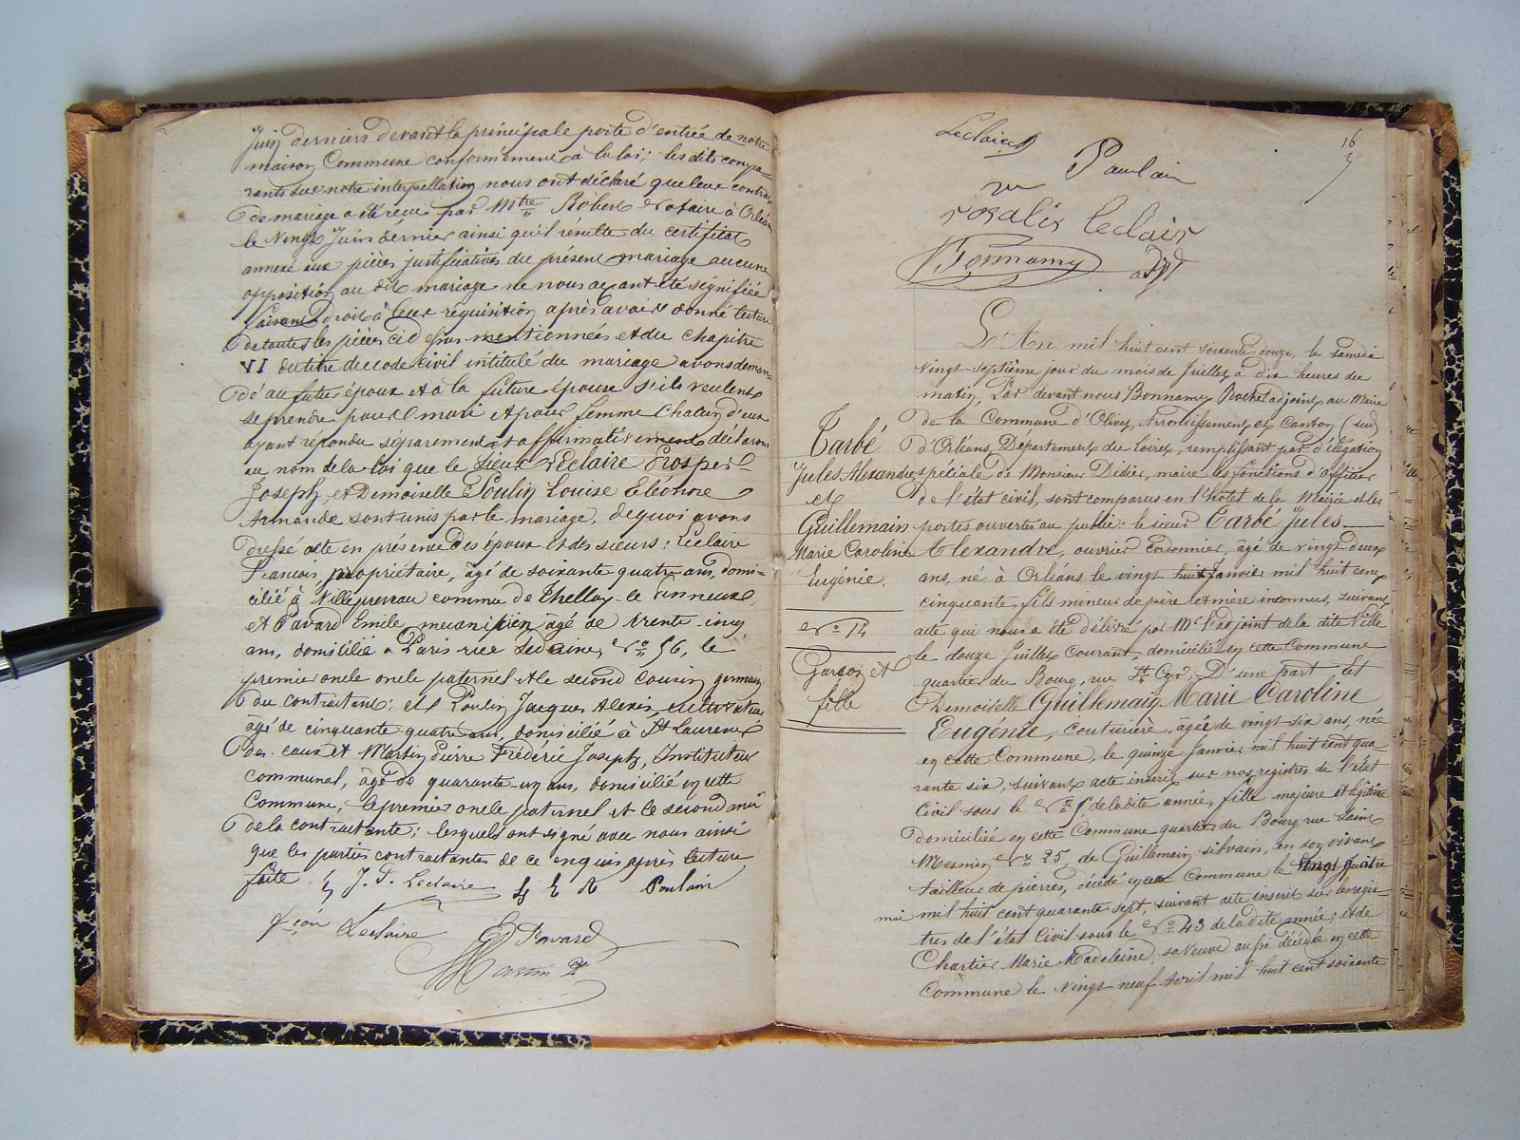 Juin derniers devant la principale porte d'entrée de notre
maison Commune conformément à la loi; les dits compa-
rants sur notre interpellation nous ont déclaré que leur contrat
de mariage a été reçu par Mtre Robert Notaire à Orléans
le Vingt Juin dernier ainsi qu'il résulte du certificat
annexé aux pièces justificatives du présent mariage aucune
opposition au dit mariage ne nous ayant été signifiée
faisant droit à leur réquisition après avoir donné lecture
de toutes les pièces ci-dessus mentionnées et du chapitre
VI du titre du code Civil intitulé du mariage avons deman-
dé au futur époux et à la future épouse s'ils veulent
se prendre pour mari et pour femme chacun d'eux
ayant répondu séparement et affirmativement déclarons
au nom de la loi que le Sieur Leclaire Prosper
Joseph et Demoiselle Poulin Louise Eléonore
Armande sont unis par le mariage, de quoi avons
dressé acte en présence des époux et des sieurs: Leclaire
François, propriétaire, âgé de soixante quatre ans, domi-
cilié à Villepreneau commune de Thelloy-le
et Favard Emile, mecanicien âgé de trente cinq
ans, domicilié à Paris rue Sedaine, No 56, le
premier oncle paternel et le second Cousin germain
du contractant; et Poulin Jacques Alexis, cultivateur
âgé de cinquante quatre ans, domicilié à St Laurent
des eaux et Martin Pierre Frédéric Joseph, Instituteur
communal, âgé de quarante un ans, domicilié en cette
Commune, le premier oncle paternel et le second ami
de la contractante; lesquels ont signé avec nous ainsi
que les parties contractantes de ce enquis après lecture
faite. J. P. Leclaire Poulain
Leclaire E Favard
Martin
Leclaire
16
Paulain
rosalie leclair
Bonnamy adjt
L'An mil huit cent soixante douze, le samedi
Vingt-septième jour du mois de Juillet à dix heures du
matin, Par devant nous Bonnamy Rochet adjoint au Maire
de la Commune d'Olivet, Arrondissement et Canton (sud)
d'Orléans, Département du Loiret, remplissant par délégation
spéciale de Monsieur Didier, maire les fonctions d'officier
de l'état civil, sont comparus en l'hôtel de la Mairie et les
portes ouvertes au public: le sieur Tarbé Jules
Alexandre, ouvrier Cordonnier, âgé de vingt deux
ans, né à Orléans le vingt huit Janvier mil huit cent
cinquante, fils mineur de père et mère inconnus, suivant
acte qui nous a été délivré par Mr l'adjoint de la dite Ville
le douze Juillet courant, domicilié en cette Commune
quartier du Bourg, rue St Cyr; D'une part et
Demoiselle Guillemain Marie Caroline
Eugénie, couturière, âgée de vingt-six ans, née
en cette Commune, le quinze Janvier mil huit cent qua-
rante six, suivant acte inscrit sur nos registres de l'état
Civil sous le No de la dite année, fille majeure et légitime
domiciliée en cette Commune quartier du Bourg rue Saint
Mesmin, No 25, de Guillemain silvain, en son vivant
tailleur de pierres, décédé en cette Commune le Vingt quatre
mai mil huit cent quarante sept, suivant acte inscrit sur les regis-
tres de l'état Civil sous le No 43 de la dite année; et de
Chartier Marie Madeleine, sa veuve aussi décédée en cette
Commune le Vingt neuf Avril mil huit cent soixante
Tarbé
Jules Alexandre
et
Guillemain
Marie Caroline
Eugénie.
No 14
Garçon et
fille